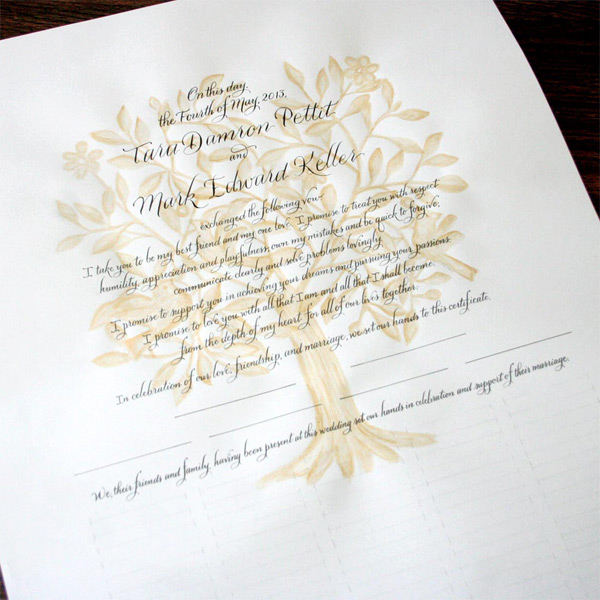 On this day,
the Fourth of May, 2013,
Tara Damron Pettit
and
Mark Edward Keller
exchanged the following vow
I take you to be my best friend and my one love. I promise to treat you with respect
humility, appreciation and playfulness, own my mistakes and be quick to forgive,
communicate clearly and solve problems lovingly.
I promise to support you in achieving your dreams and pursuing your passions
I promise to love you with all that I am and all that I shall become,
from the depth of my heart, for all of our lives together.
In celebration of our love, friendship, and marriage, we set our hands to this certificate.
We, their friends and family, having been present at this wedding set our hands in celebration and support of their marriage.